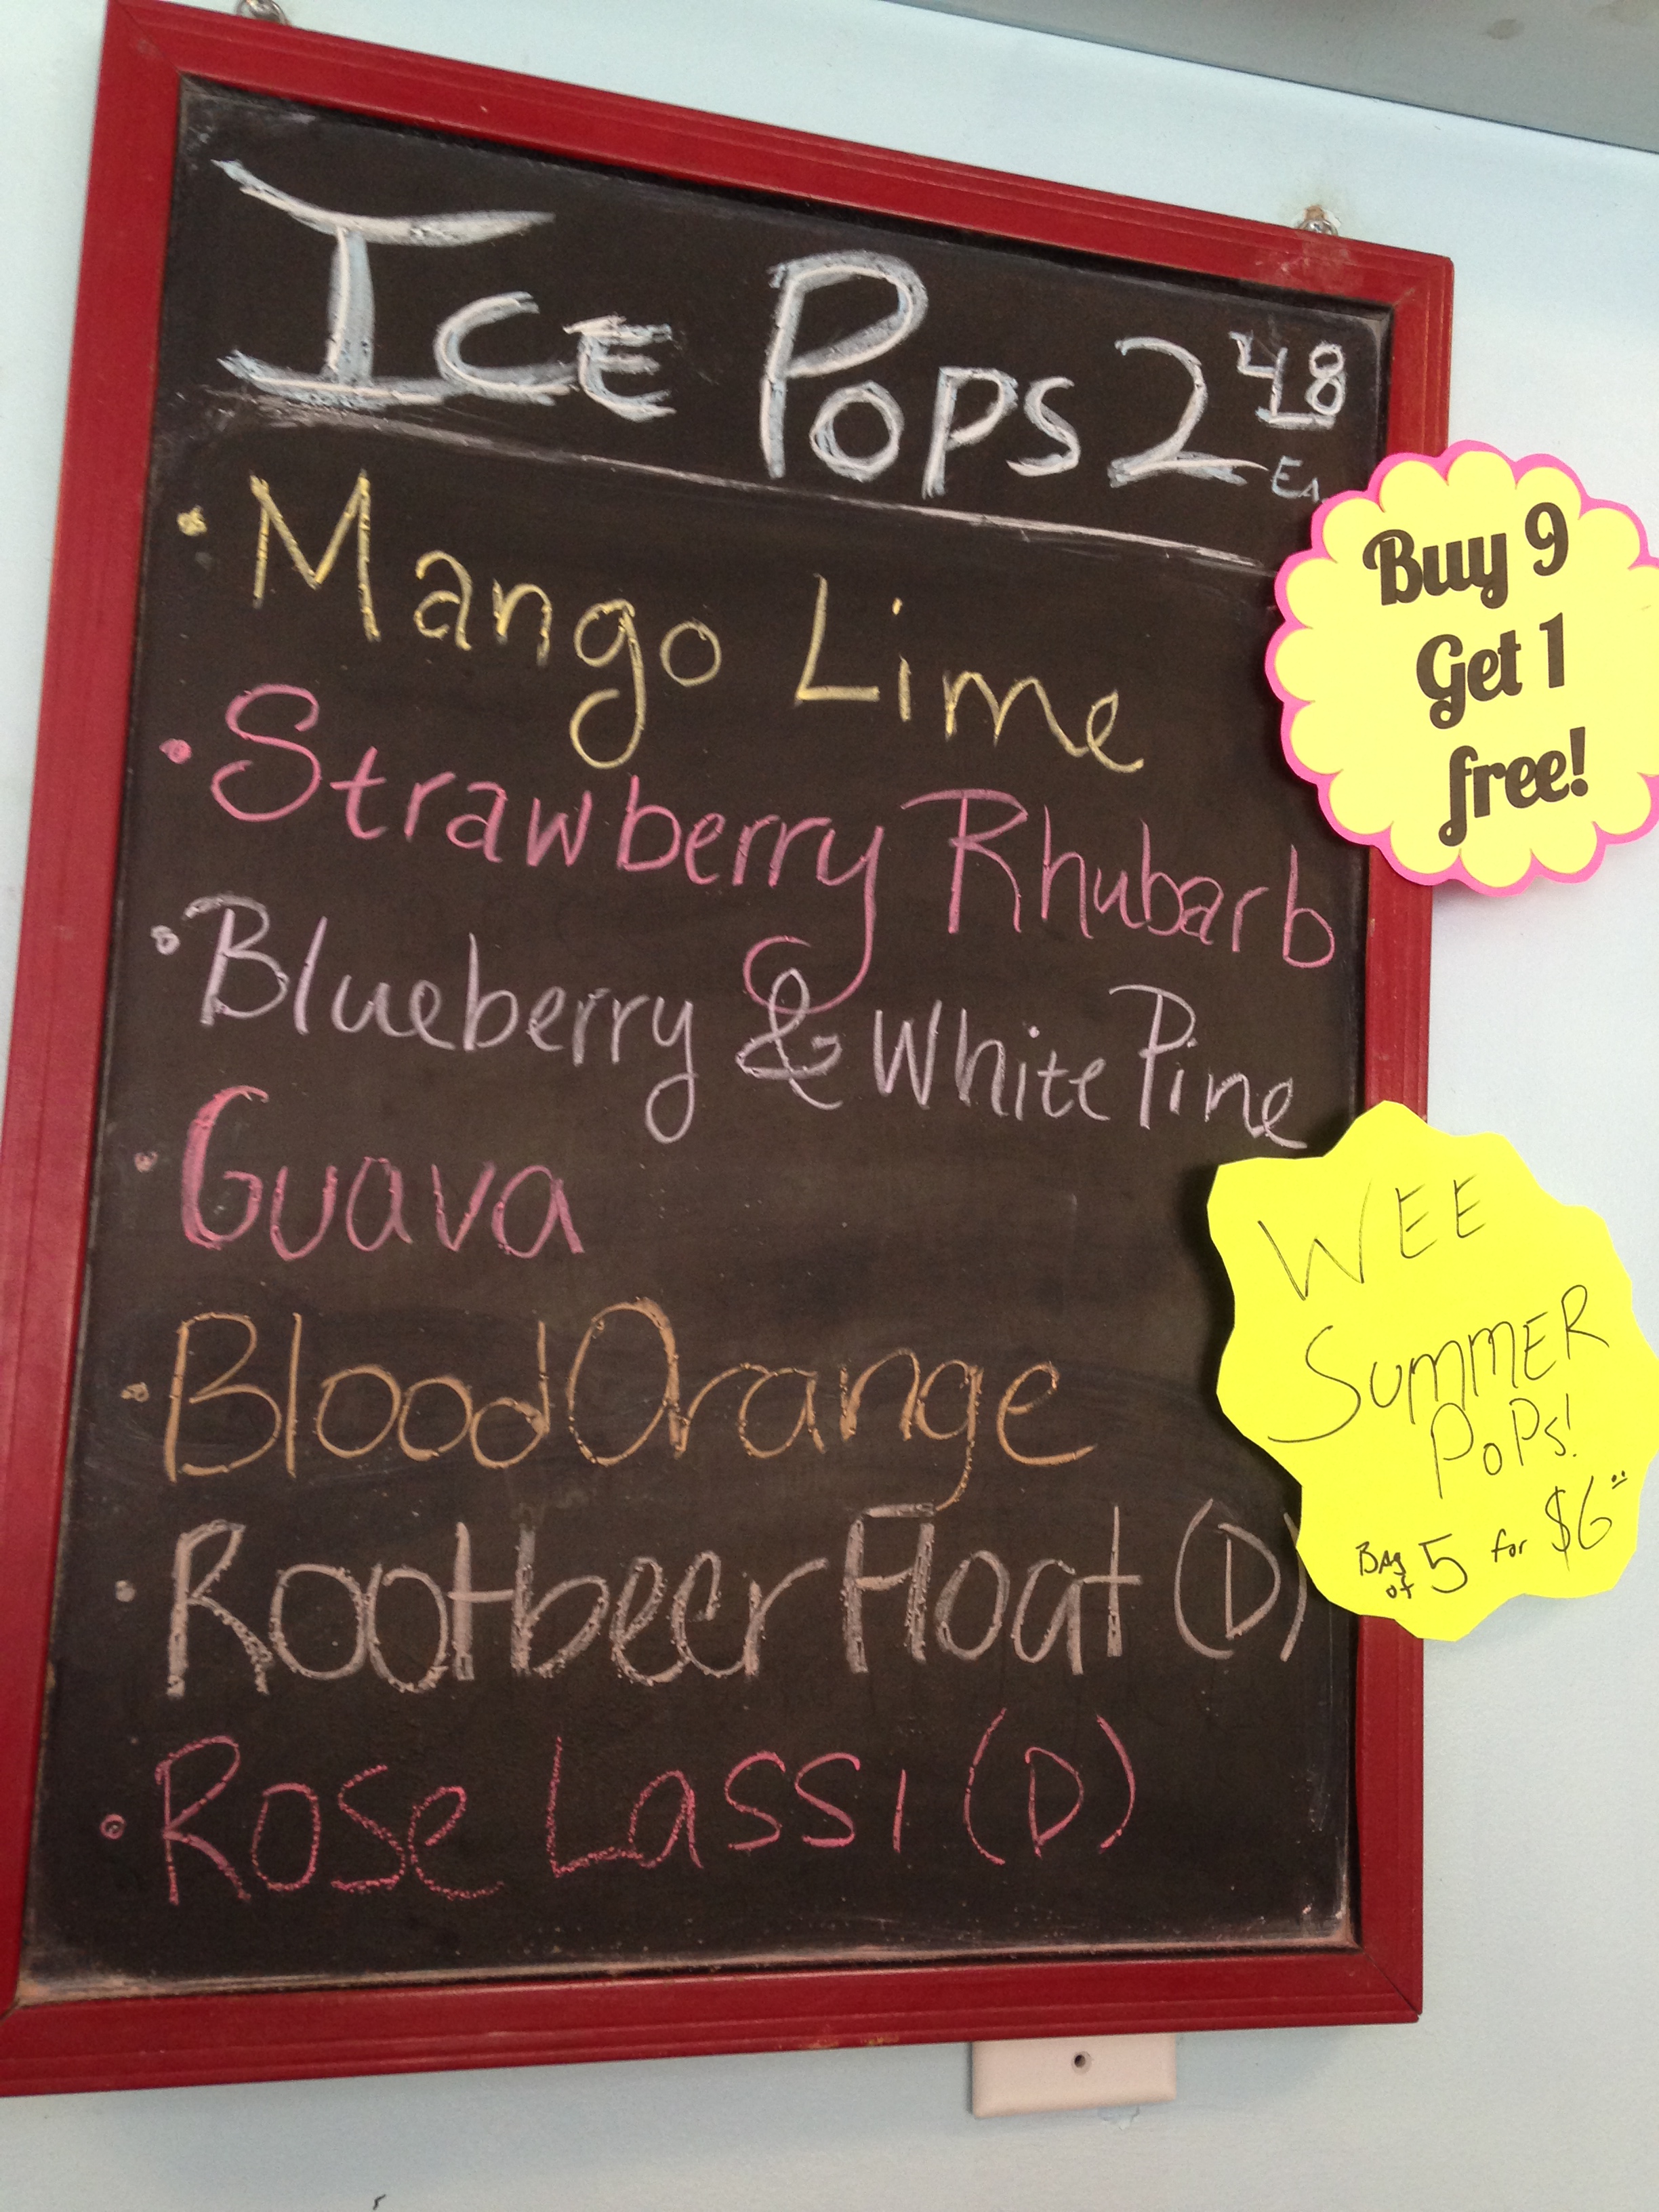 Ice Pops 2 48 Ea
• Mango Lime
• Strawberry Rhubarb
• Blueberry & White Pine
• Guava
• Blood Orange
• Rootbeer Float (D)
• Rose Lassi (D)
Buy 9
Get 1
free!
WEE
SUMMER
POPS!
BAg of 5 for $6